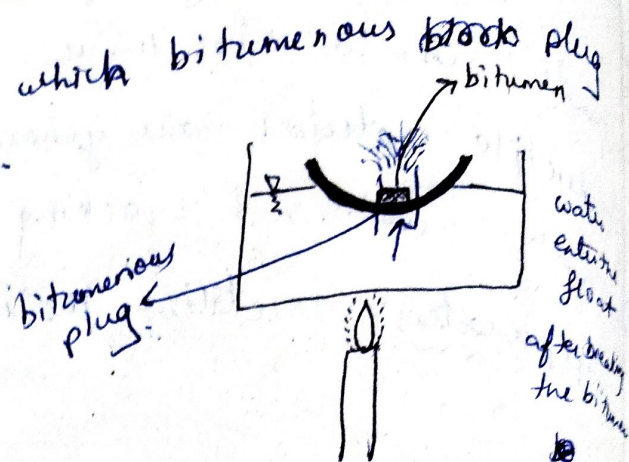 which bitumenous plug
bitumen
bitumenious
plug.
water
enters
float
after breaking
the bitumen